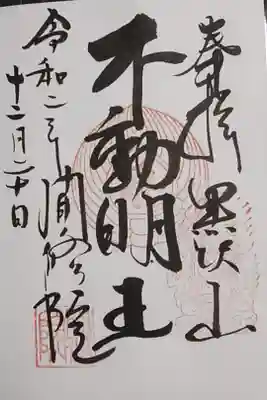 奉拝 黒沢山
不動明王
令和二年
十二月二十日
清修院